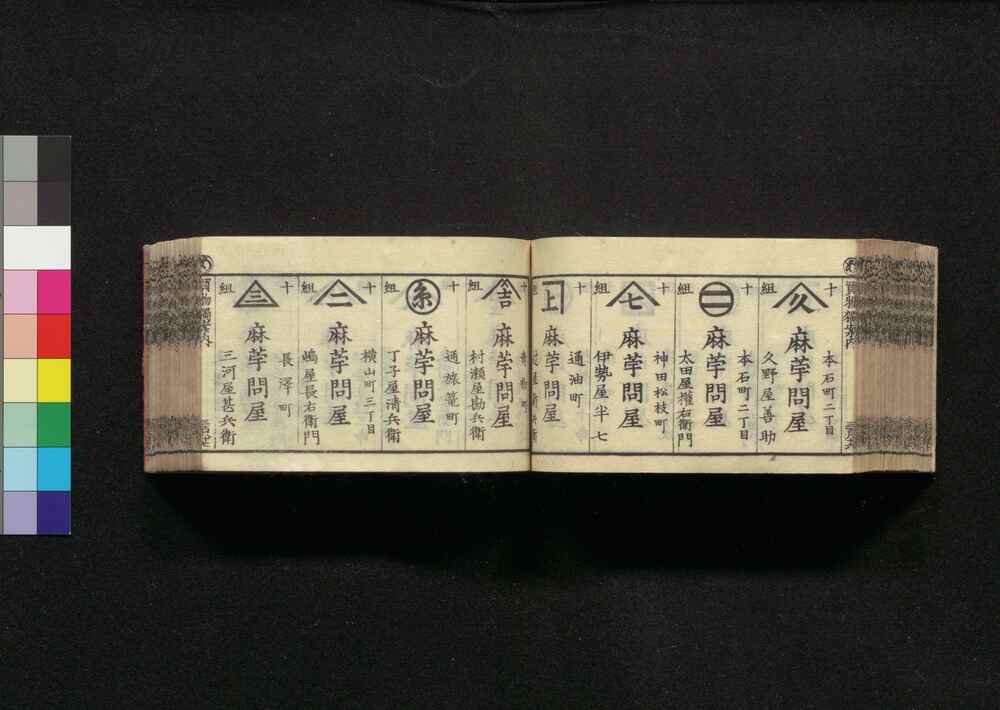 十組
久
本石町二丁目
麻苧問屋
久野屋善助
十組
二
本石町二丁目
麻苧問屋
太田屋権右衛門
十組
七
神田松枝町
麻苧問屋
伊勢屋半七
十
上
通油町
麻苧問屋
十組
吉
麻苧問屋
村瀬屋勘兵衛
十組
糸
通旅籠町
麻苧問屋
丁子屋清兵衛
十組
二
横山町三丁目
麻苧問屋
嶋屋長右衛門
十組
三
長澤町
麻苧問屋
三河屋甚兵衛